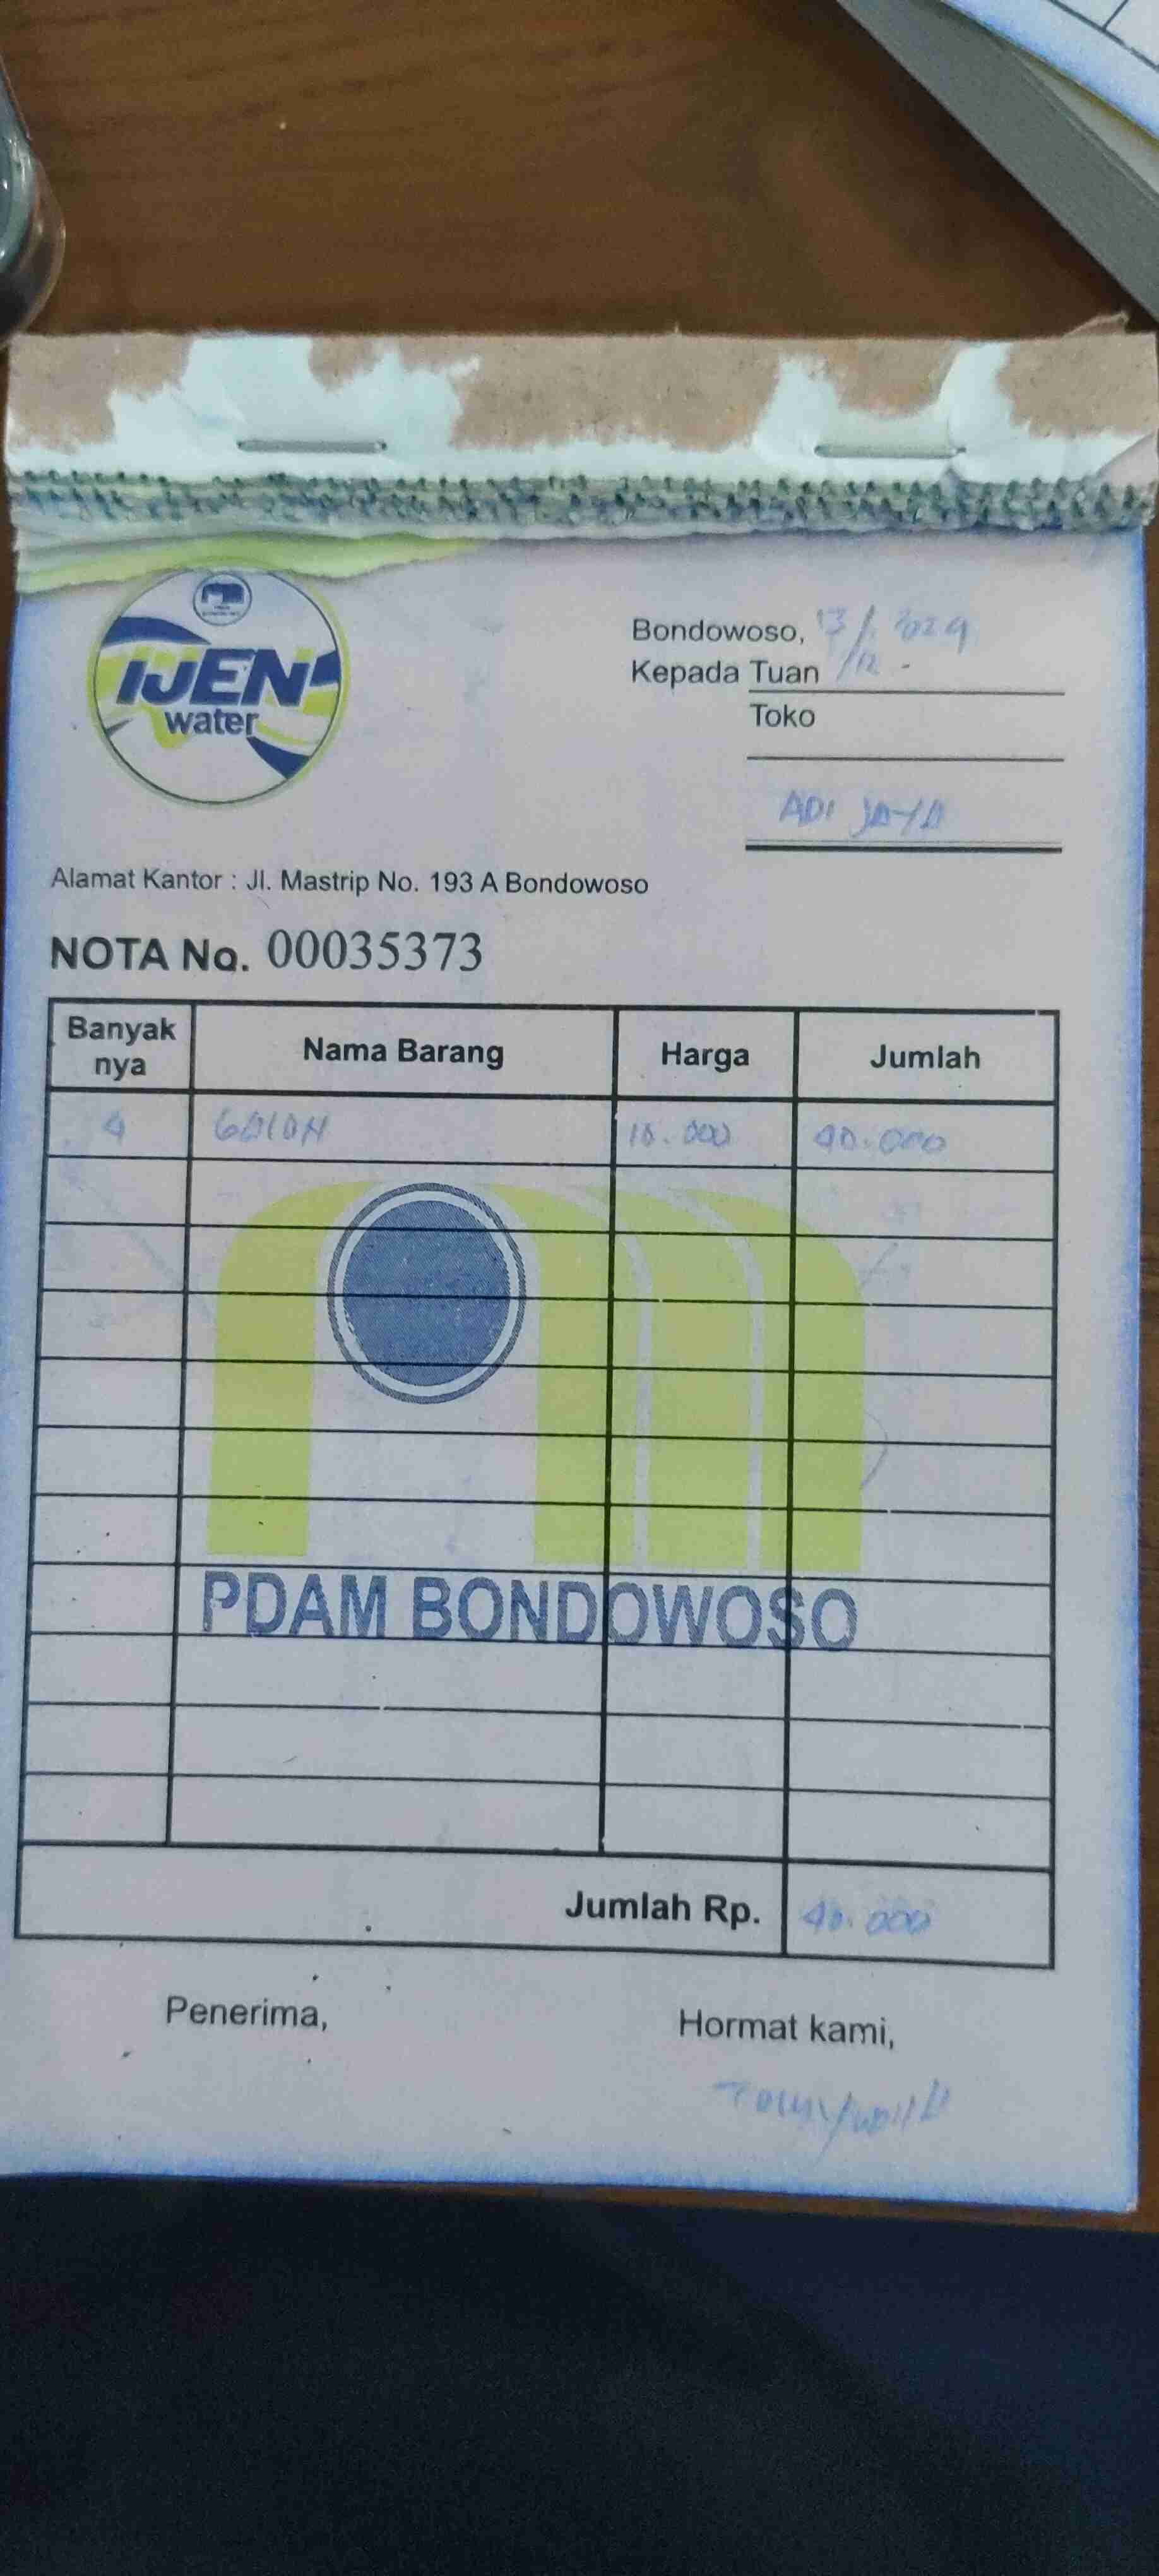 IJEN
water
Bondowoso, 13/12 2024
Kepada Tuan
Toko
ADI JAYA
Alamat Kantor : Jl. Mastrip No. 193 A Bondowoso
NOTA No. 00035373
Banyak nya Nama Barang Harga Jumlah
4 GALON 10.000 40.000
PDAM BONDOWOSO
Jumlah Rp. 40.000
Penerima, Hormat kami,